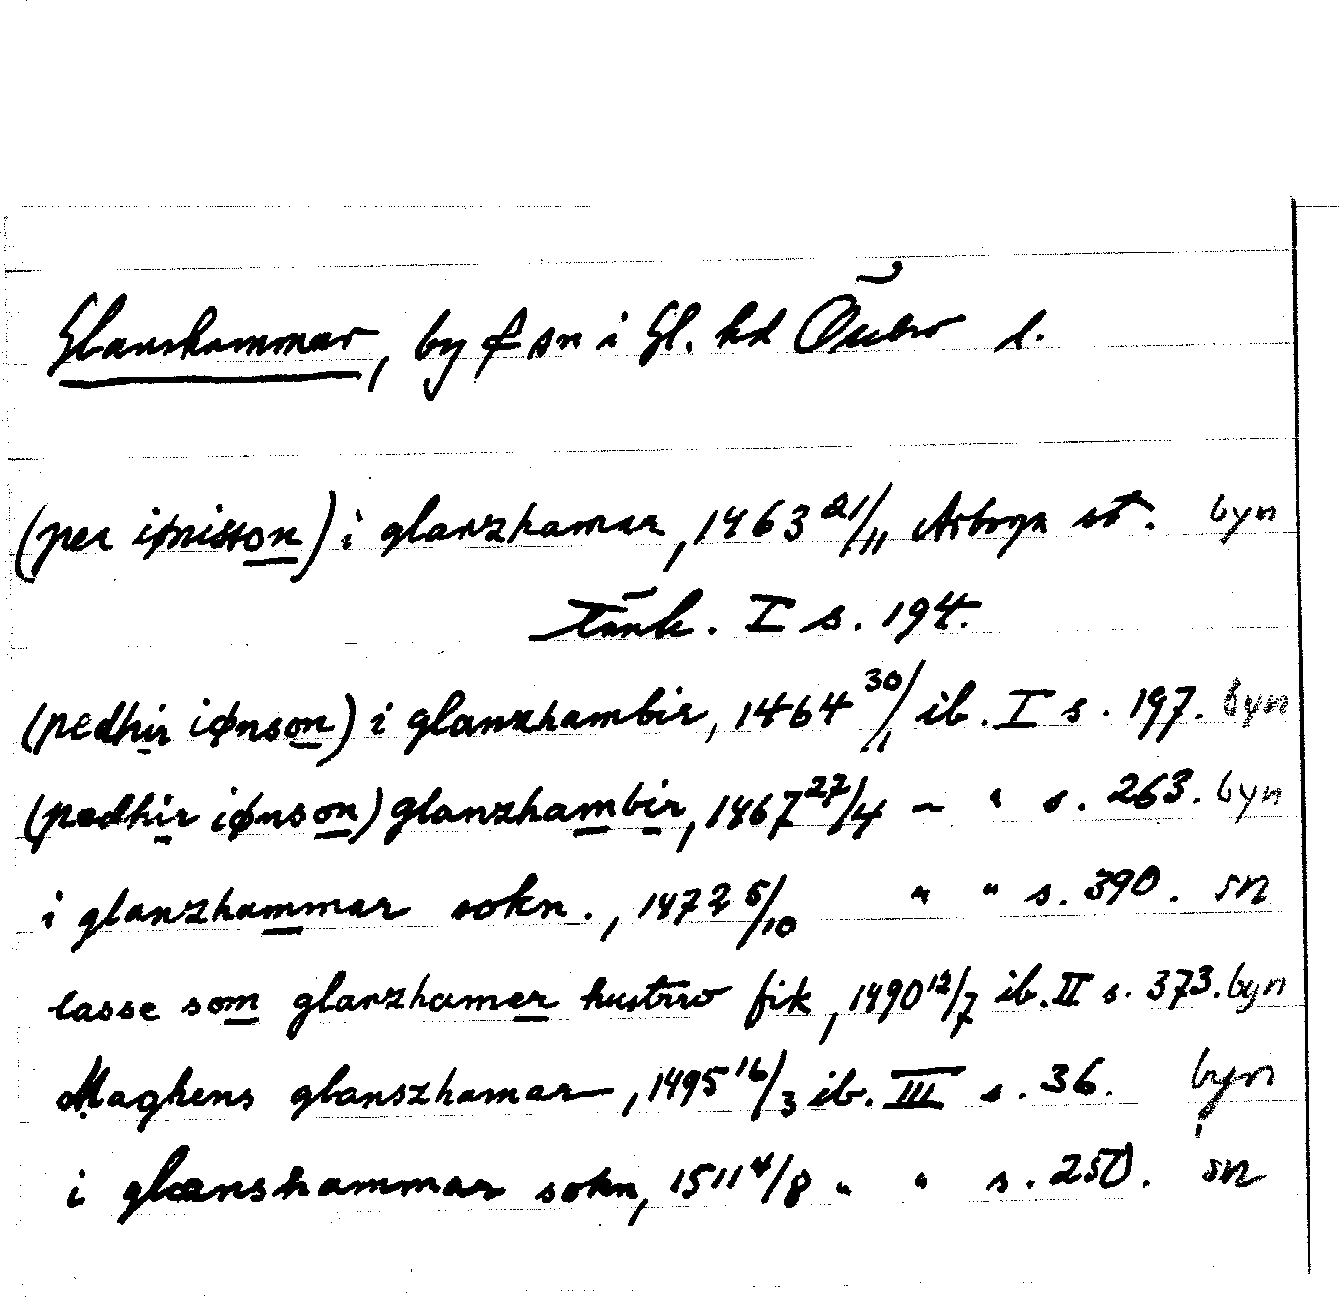 Glanshammar, by & sn i Gl. hd Örebro l.
(per iønisson) i glanzhamar, 1463 21/11 Arboga st. byn
Tänk. I s. 194.
(pedhir iønson) i glanzhambir, 1464 30/11 ib. I s. 197. byn
(pædhir iønson) glanzhambir, 1467 27/4 – " s. 263. byn
i glanzhammar sokn., 1472 5/10 " " s. 390. sn
lasse som glanzhamer hustrw fik, 1490 12/7 ib. II s. 373. byn
Maghens glanszhamar, 1495 16/3 ib. III s. 36. byn
i glænshammar sokn, 1511 4/8 " " s. 250. sn